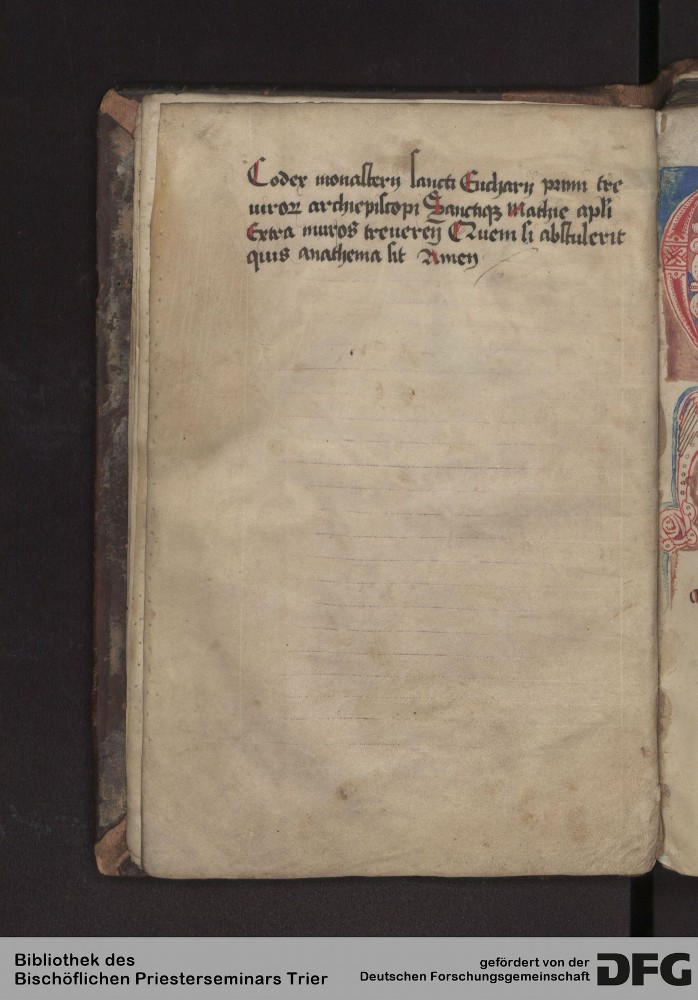 Codex monasterij sancti Eucharij primi tre
uiroꝝ archiepiscopi Sanctiqꝫ Mathie apli
Extra muros treuereñ Quem si abstulerit
quis anathema sit Amen
Bibliothek des
Bischöflichen Priesterseminars Trier
gefördert von der
Deutschen Forschungsgemeinschaft DFG